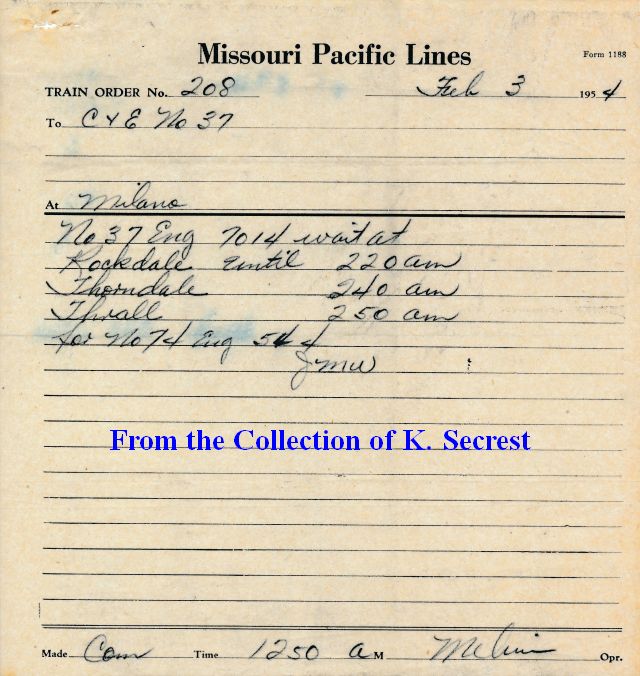 Missouri Pacific Lines
Form 1188
TRAIN ORDER No. 208 Feb 3 1954
To C & E No 37
At Milano
No 37 Eng 7014 wait at
Rockdale until 220 am
Thorndale 240 am
Thrall 250 am
for No 74 Eng 544
JMW
From the Collection of K. Secrest
Made Com Time 1250 A M Opr.